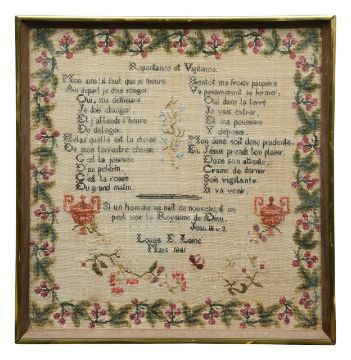 Repentance et Vigilance.
Mon ame! il faut que je meure.
Au depart je dois songer.
Oui, ma demeure
Je dois changer,
Et j'attends l'heure
De deloger.
Helas quelle est la duree
De mon terrestre chemin
C'est la journee
D'un pelerin,
C'est la rosee
Du grand matin.
Bientôt ma froide paupiere
Va pesamment se fermer.
Oui dans la terre
Je vais entrer,
Et ma poussiere
Y deposer.
Mon ame soit donc prudente.
En Jesus prends ton plaisir
Dans son attente,
Crains de dormir
Sois vigilante
Il va venir.
Si un homme ne nait de nouveau, il ne
peut voir le Royaume de Dieu.
Jean III v 3.
Louise E. Laine
Mars 1841